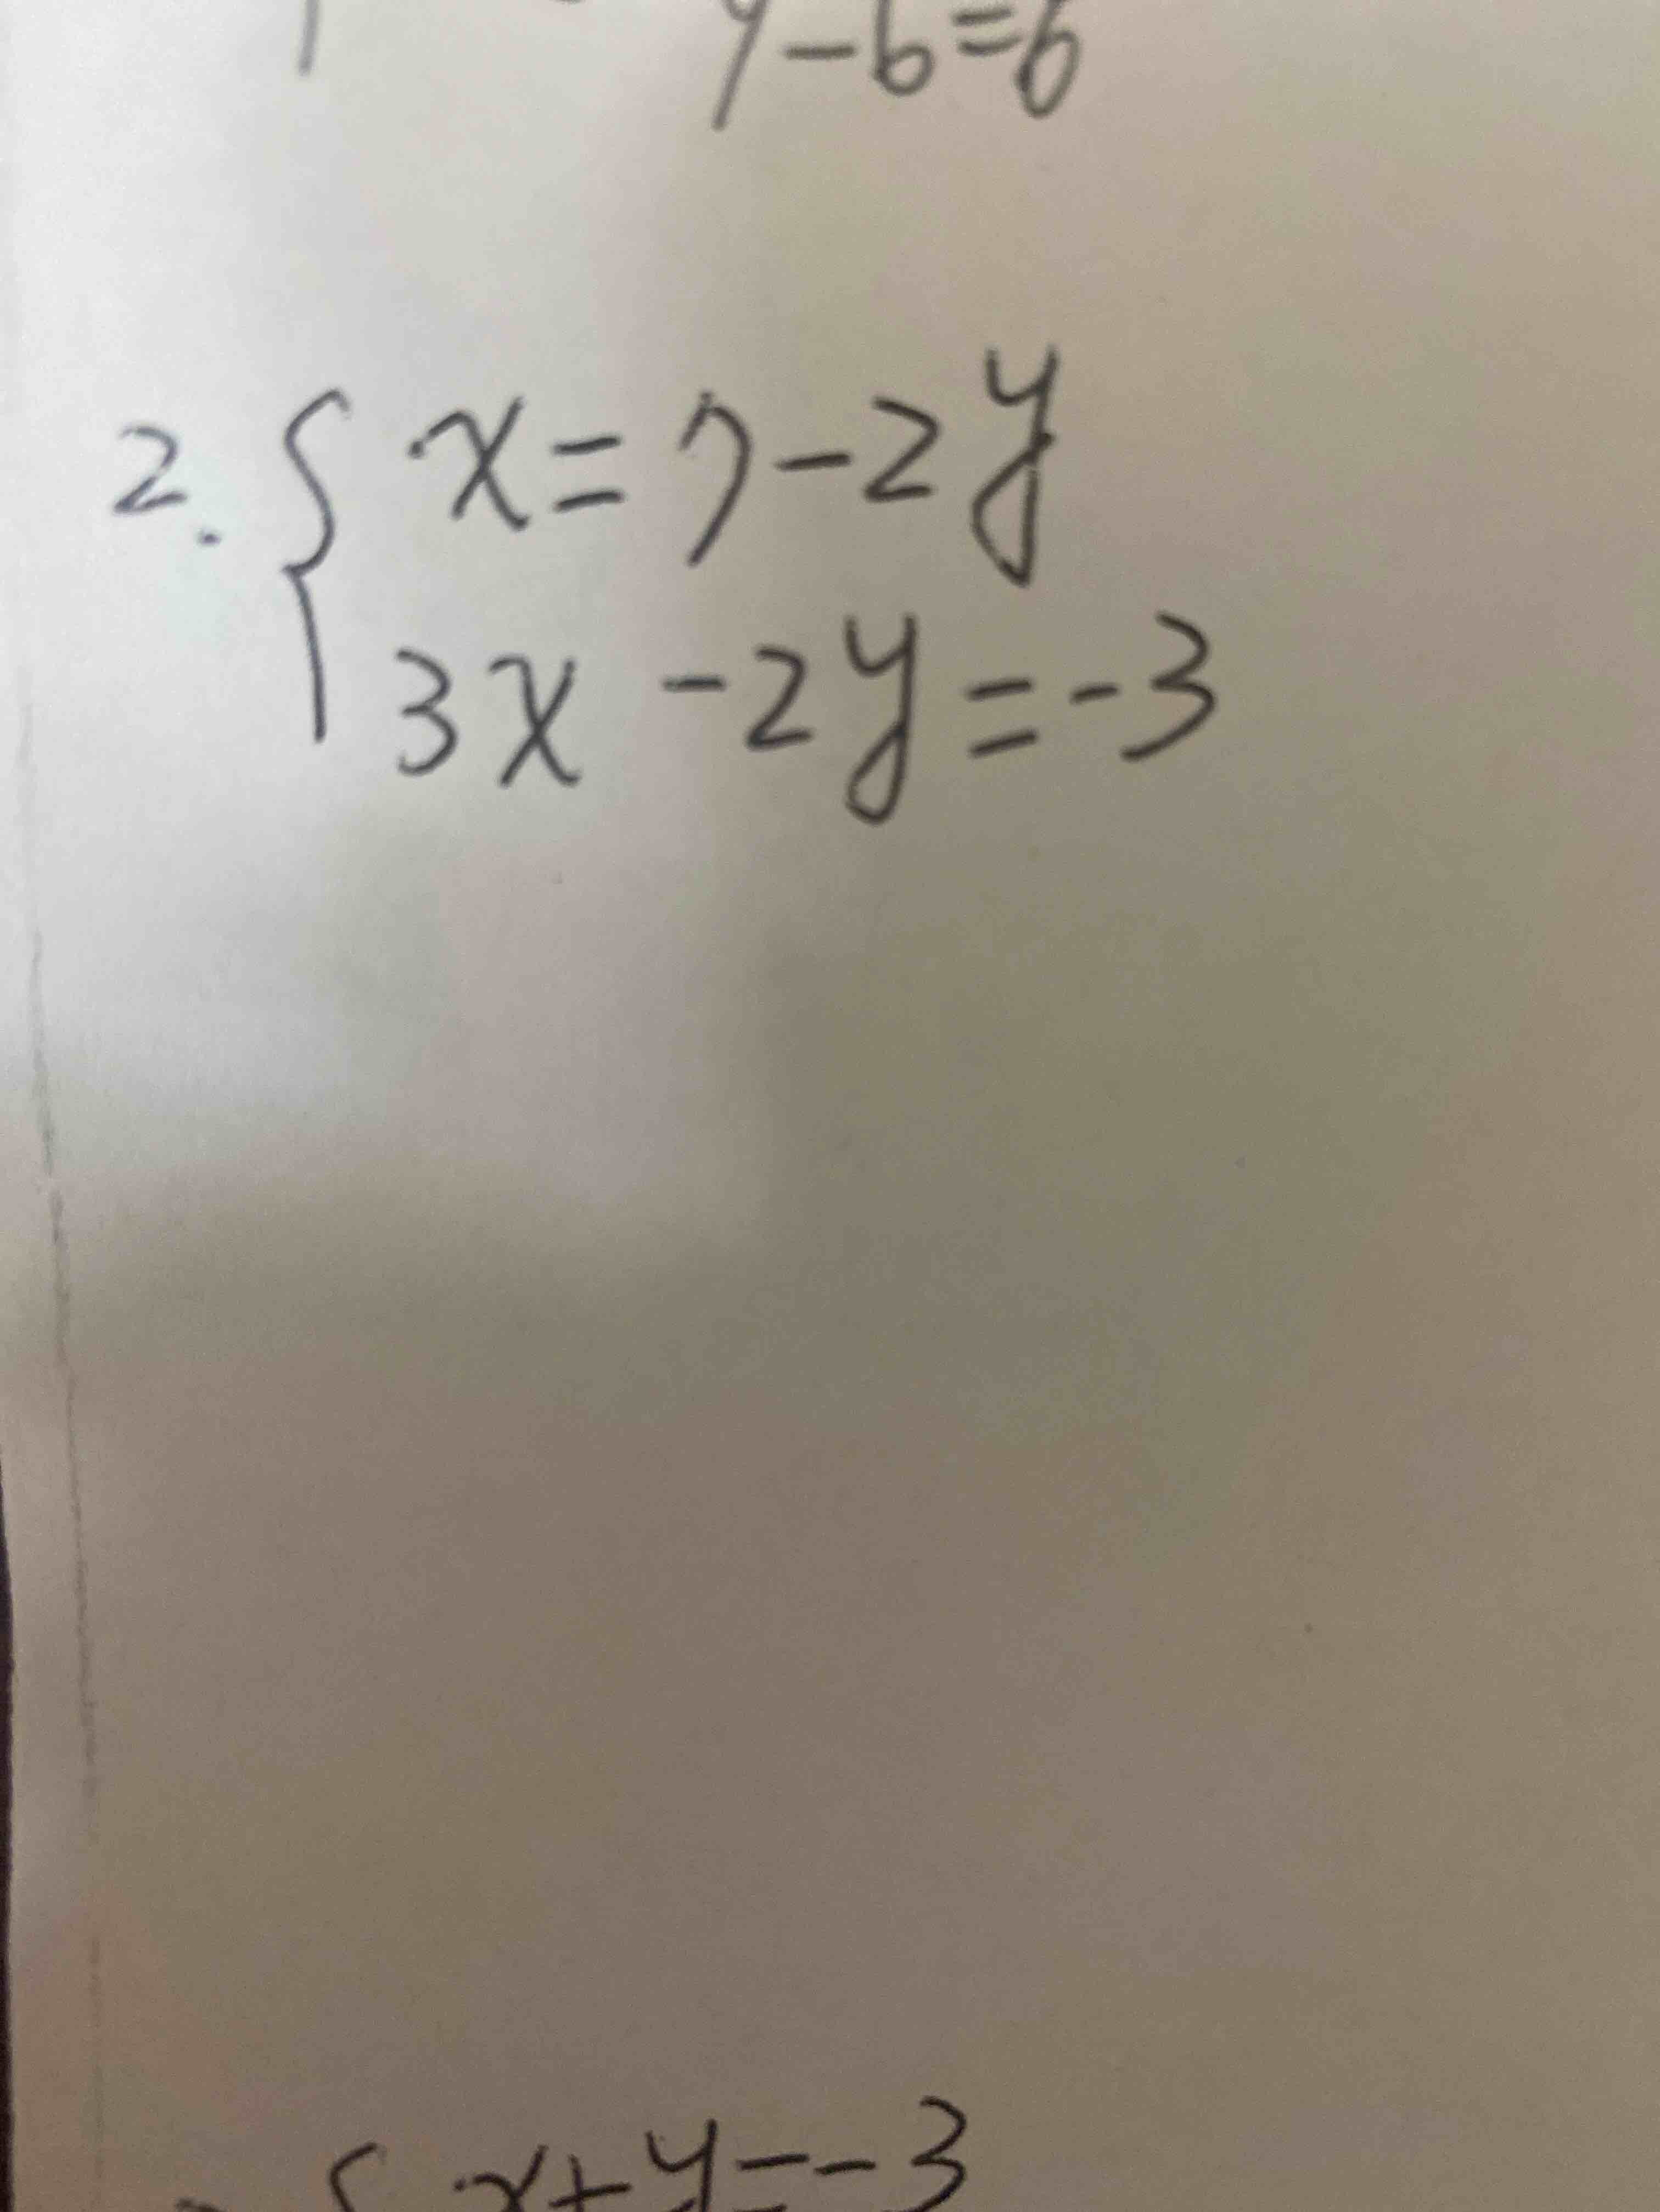 y-6=6
2. { x=7-2y
3x-2y=-3
{ x+y=-3